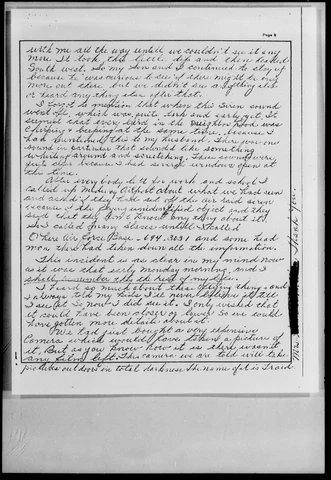 Page 8
with me all the way untill we couldn't see it any
more. It took this little dip and then headed
South west. So my Son and I continued to stay up
because he was curious to see if there might be any
more out there but we didn't see anything else
or heard anything else after that.
I forgot to mention that when this Siren sound
went off, which was quite dark and early yet. It
seemed that every bird in the Neighbor hood was
Chirping + beeping at the same time, because I
had mentioned this to my husband. There was one
sound in particular that sounded like something
whirling around and screeching. These sounds were
quite clear because I had several windows open at
the time.
After every body left for work and school I
called up Airport about what we had seen
and asked if they had set off the air raid siren
because of the flying unidentified object and they
said that they don't know any thing about it.
So I called many places untill I called
O'Hare Air Force Base - 694-3031 and some head
man there had taken down all the information.
This incident is as clear in my mind now
as it was that early Monday morning, and I
shall remember this the rest of my life.
I heard so much about these flying things and
I always told my kids I'll never believe it till
I see it. So now I did see it. I only wished that
it could have been closer or lower so we could
have gotten more details about it.
We had just bought a very expensive
Camera which would have taken a picture of
it. But as you know how it is there wasn't
any film left. This camera we are told will take
pictures outdoors in total darkness. The name of it is
Mrs.